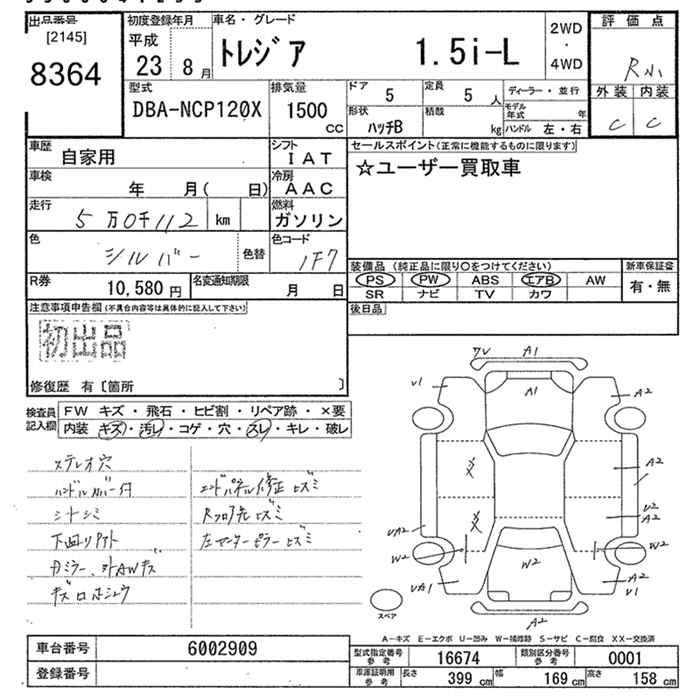 出品番号 [2145] 8364
初度登録年月 平成 23 8月
車名・グレード トレジア 1.5i-L
2WD・4WD
評価点 R小
外装 内装
C C
型式 DBA-NCP120X
排気量 1500 CC
ドア 5
定員 5人
ディーラー・並行
モデル年式 年
形状 ハッチB
積酷 kg
ハンドル 左・右
車歴 自家用
シフト IAT
セールスポイント(正常に機能するものに限ります)
☆ユーザー買取車
車検 年 月( 日)
冷房 AAC
走行 5万0千112 km
燃料 ガソリン
色 シルバー 色替
色コード 1F7
装備品 (純正品に限り○をつけてください)
新車保証書
PS PW ABS エアB AW
有・無
SR ナビ TV カワ
R券 10,580円
名変通知期限 月 日
後日品
注意事項申告欄(不具合内容等は具体的に記入して下さい)
初出品
修復歴 有〔箇所 〕
検査員記入欄
FW キズ・飛石・ヒビ割・リペア跡・×要
内装 キズ・汚レ・コゲ・穴・スレ・キレ・破レ
ステレオ穴
ハンドルカバー付
シートシミ
下回リサビ
カミラー、外AWキズ
エンドパネル修正ヒズミ
Rフロア先ヒズミ
左センターピラーヒズミ
ワレ A1
V1 A1 A2
A2
U2
A2
UA2
W2 W2 W2
UA1 A2
V1
A2
スペア
A-キズ E-エクボ U-凹み W-補修跡 S-サビ C-腐食 XX-交換済
車台番号 6002909
登録番号
型式指定番号 参考 16674
類別区分番号 参考 0001
車庫証明用 参考 長さ 399cm 幅 169cm 高さ 158cm